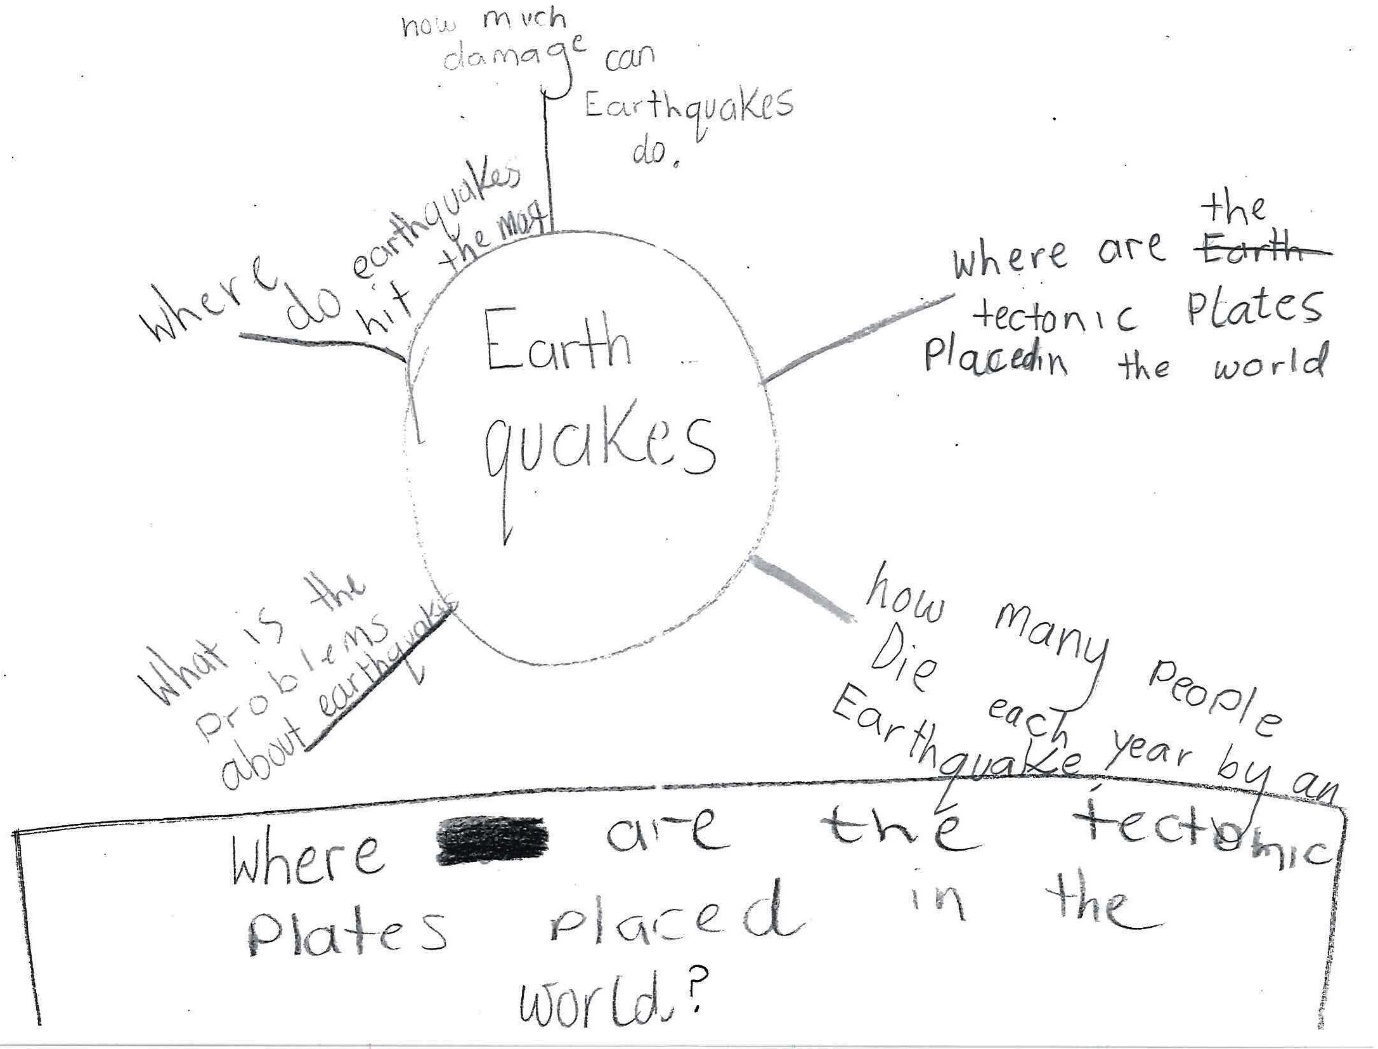 how much
damage can
Earthquakes
do.
where do earthquakes
hit the most
Earth
quakes
where are the
Earth
tectonic Plates
Placed in the world
What is the
problems
about earthquakes
how many people
Die each year by an
Earthquake
Where are the tectonic
Plates placed in the
world?